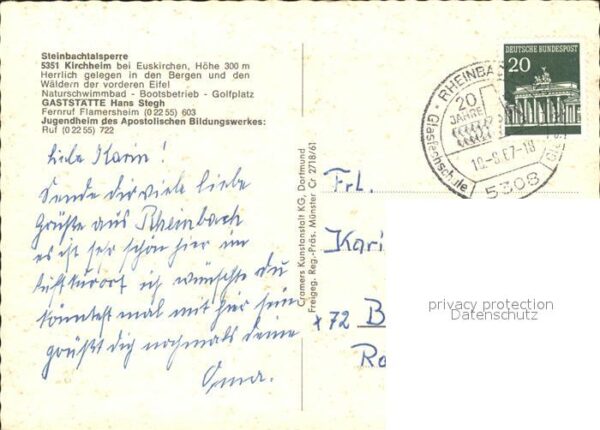 Steinbachtalsperre
5351 Kirchheim bei Euskirchen, Höhe 300 m
Herrlich gelegen in den Bergen und den
Wäldern der vorderen Eifel
Naturschwimmbad - Bootsbetrieb - Golfplatz
GASTSTÄTTE Hans Stegh
Fernruf Flamersheim (0 22 55) 603
Jugendheim des Apostolischen Bildungswerkes:
Ruf (0 22 55) 722
Liebe Karin!
Sende dir viele liebe
Grüße aus Rheinbach
es ist sehr schön hier im
Luftkurort ich wünschte du
könntest mal mit hier sein
grüßt dich nochmals deine
Oma.
Cramers Kunstanstalt KG, Dortmund
Freigeg. Reg.-Präs. Münster Cr 2718/61
Frl.
Kari
x 72 B
Ro
DEUTSCHE BUNDESPOST
20
RHEINBA
20
JAHRE
Glasfachschule
10.-8.67-18
5308
privacy protection
Datenschutz